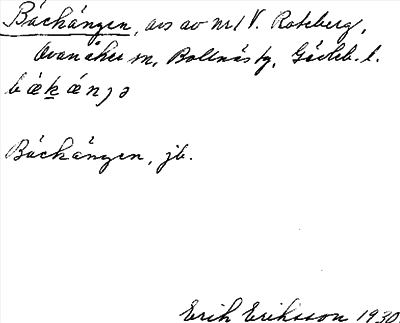 Bäckängen, avs av nr 1 V. Roteberg,
Ovanåkers sn, Bollnäs tg, Gävleb. l.
Bäckängen, jb.
Erik Eriksson 1930.